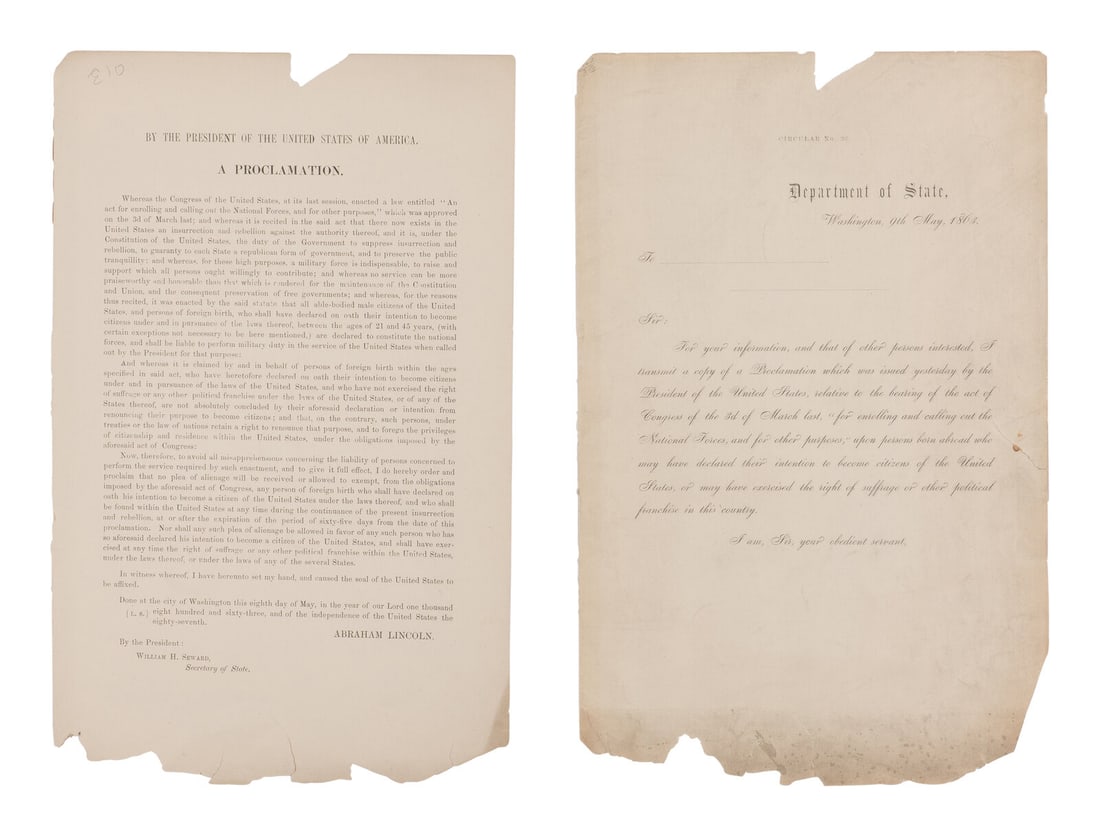 BY THE PRESIDENT OF THE UNITED STATES OF AMERICA.
A PROCLAMATION.
Whereas the Congress of the United States, at its last session, enacted a law entitled "An
act for enrolling and calling out the National Forces, and for other purposes," which was approved
on the 3d of March last; and whereas it is recited in the said act that there now exists in the
United States an insurrection and rebellion against the authority thereof, and it is, under the
Constitution of the United States, the duty of the Government to suppress insurrection and
rebellion, to guaranty to each State a republican form of government, and to preserve the public
tranquillity; and whereas, for these high purposes, a military force is indispensable, to raise and
support which all persons ought willingly to contribute; and whereas no service can be more
praiseworthy and honorable than that which is rendered for the maintenance of the Constitution
and Union, and the consequent preservation of free governments; and whereas, for the reasons
thus recited, it was enacted by the said statute that all able-bodied male citizens of the United
States, and persons of foreign birth, who shall have declared on oath their intention to become
citizens under and in pursuance of the laws thereof, between the ages of 21 and 45 years, (with
certain exceptions not necessary to be here mentioned,) are declared to constitute the national
forces, and shall be liable to perform military duty in the service of the United States when called
out by the President for that purpose:
And whereas it is claimed by and in behalf of persons of foreign birth within the ages
specified in said act, who have heretofore declared on oath their intention to become citizens
under and in pursuance of the laws of the United States, and who have not exercised the right
of suffrage or any other political franchise under the laws of the United States, or of any of the
States thereof, are not absolutely concluded by their aforesaid declaration or intention from
renouncing their purpose to become citizens; and that, on the contrary, such persons, under
treaties or the law of nations retain a right to renounce that purpose, and to forego the privileges
of citizenship and residence within the United States, under the obligations imposed by the
aforesaid act of Congress:
Now, therefore, to avoid all misapprehensions concerning the liability of persons concerned to
perform the service required by such enactment, and to give it full effect, I do hereby order and
proclaim that no plea of alienage will be received or allowed to exempt, from the obligations
imposed by the aforesaid act of Congress, any person of foreign birth who shall have declared on
oath his intention to become a citizen of the United States under the laws thereof, and who shall
be found within the United States at any time during the continuance of the present insurrection
and rebellion, at or after the expiration of the period of sixty-five days from the date of this
proclamation. Nor shall any such plea of alienage be allowed in favor of any such person who has
so aforesaid declared his intention to become a citizen of the United States, and shall have exer-
cised at any time the right of suffrage or any other political franchise within the United States,
under the laws thereof, or under the laws of any of the several States.
In witness whereof, I have hereunto set my hand, and caused the seal of the United States to
be affixed.
Done at the city of Washington this eighth day of May, in the year of our Lord one thousand
[L. S.] eight hundred and sixty-three, and of the independence of the United States the
eighty-seventh.
ABRAHAM LINCOLN.
By the President:
WILLIAM H. SEWARD,
Secretary of State.
CIRCULAR No.
Department of State,
Washington, 9th May, 1863.
To
Sir:
For your information, and that of other persons interested, I
transmit a copy of a Proclamation which was issued yesterday by the
President of the United States, relative to the bearing of the act of
Congress of the 3d of March last, "for enrolling and calling out the
National Forces, and for other purposes," upon persons born abroad who
may have declared their intention to become citizens of the United
States, or may have exercised the right of suffrage or other political
franchise in this country.
I am, Sir, your obedient servant,